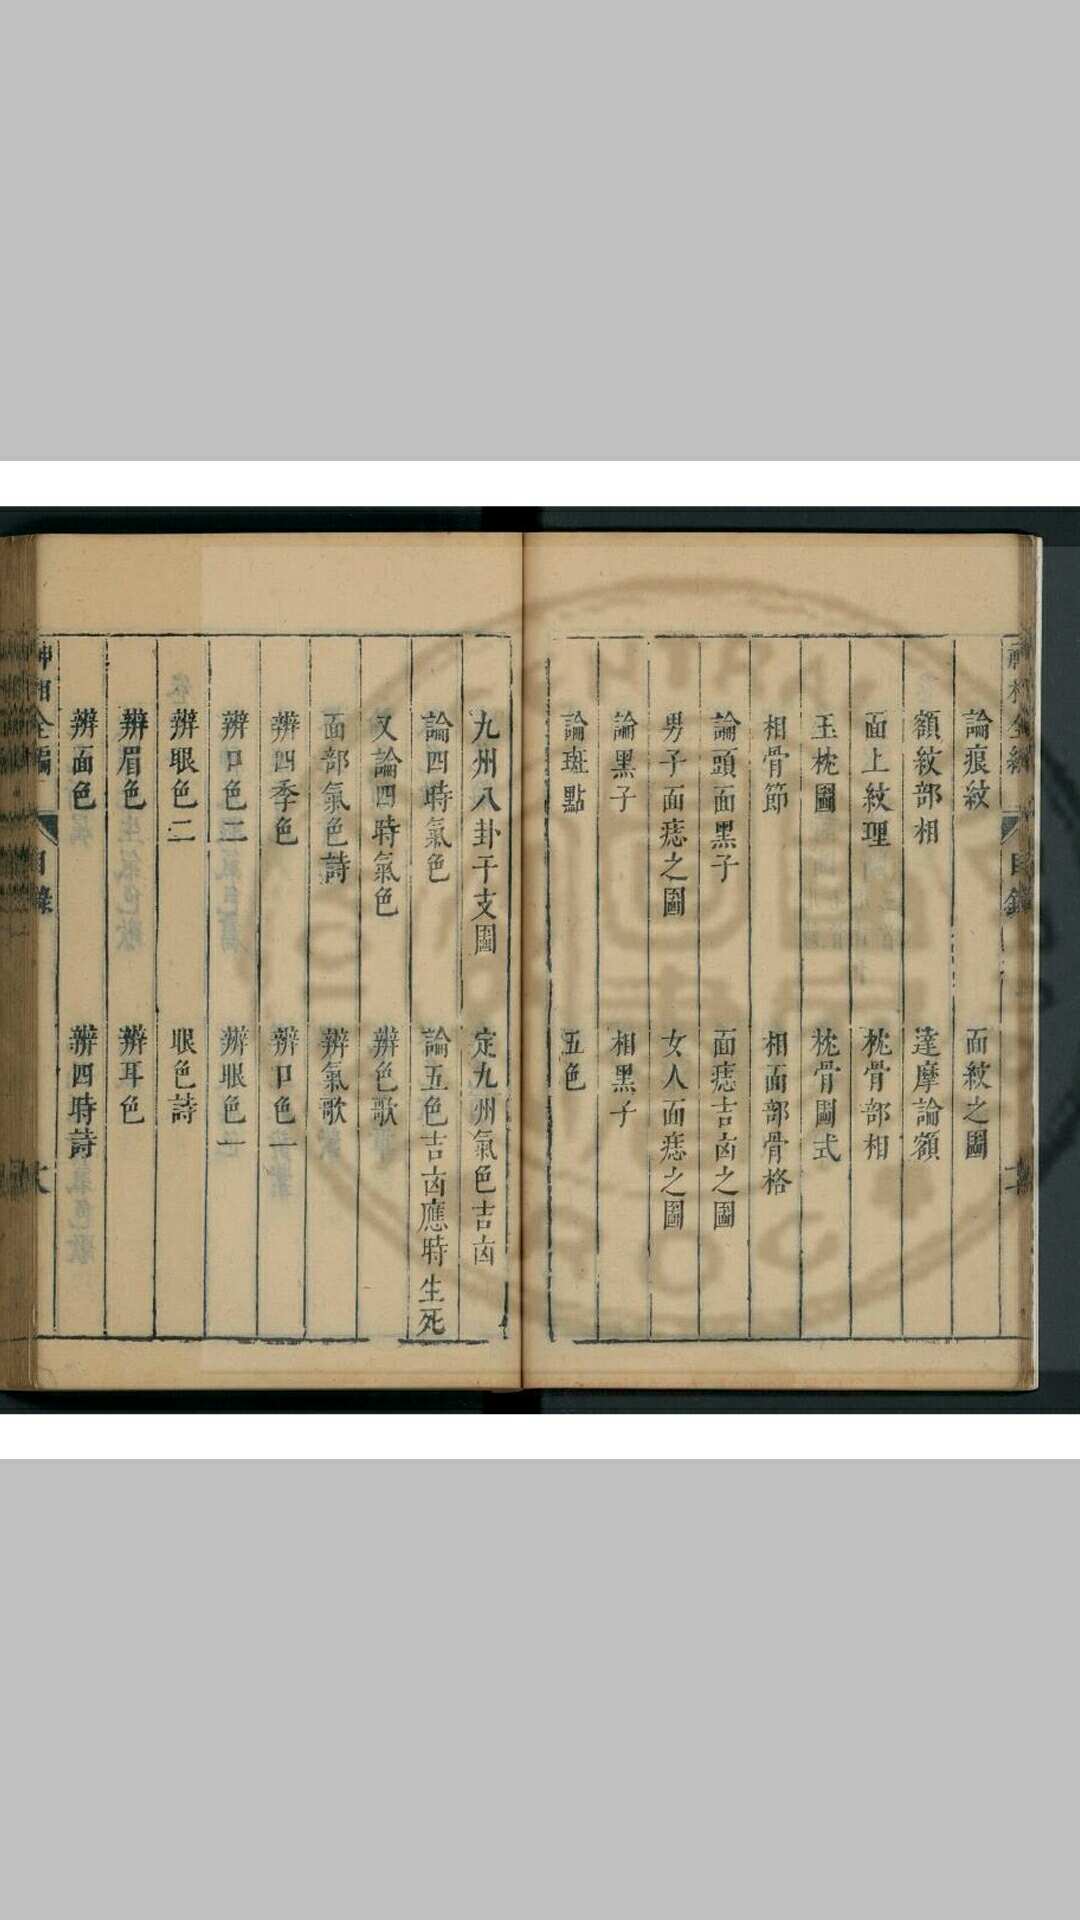 論痕紋
面紋之圖
額紋部相
達摩論額
面上紋理
枕骨部相
玉枕圖
枕骨圖式
相骨節
相面部骨格
論頭面黑子
面痣吉凶之圖
男子面痣之圖
女人面痣之圖
論黑子
相黑子
論斑點
五色
九州八卦干支圖
定九州氣色吉凶
論四時氣色
論五色吉凶應時生死
又論四時氣色
辨色歌
面部氣色詩
辨氣歌
辨四季色
辨口色一
辨口色二
辨眼色一
辨眼色二
眼色詩
辨眉色
辨耳色
辨面色
辨四時詩
神相全編
目錄